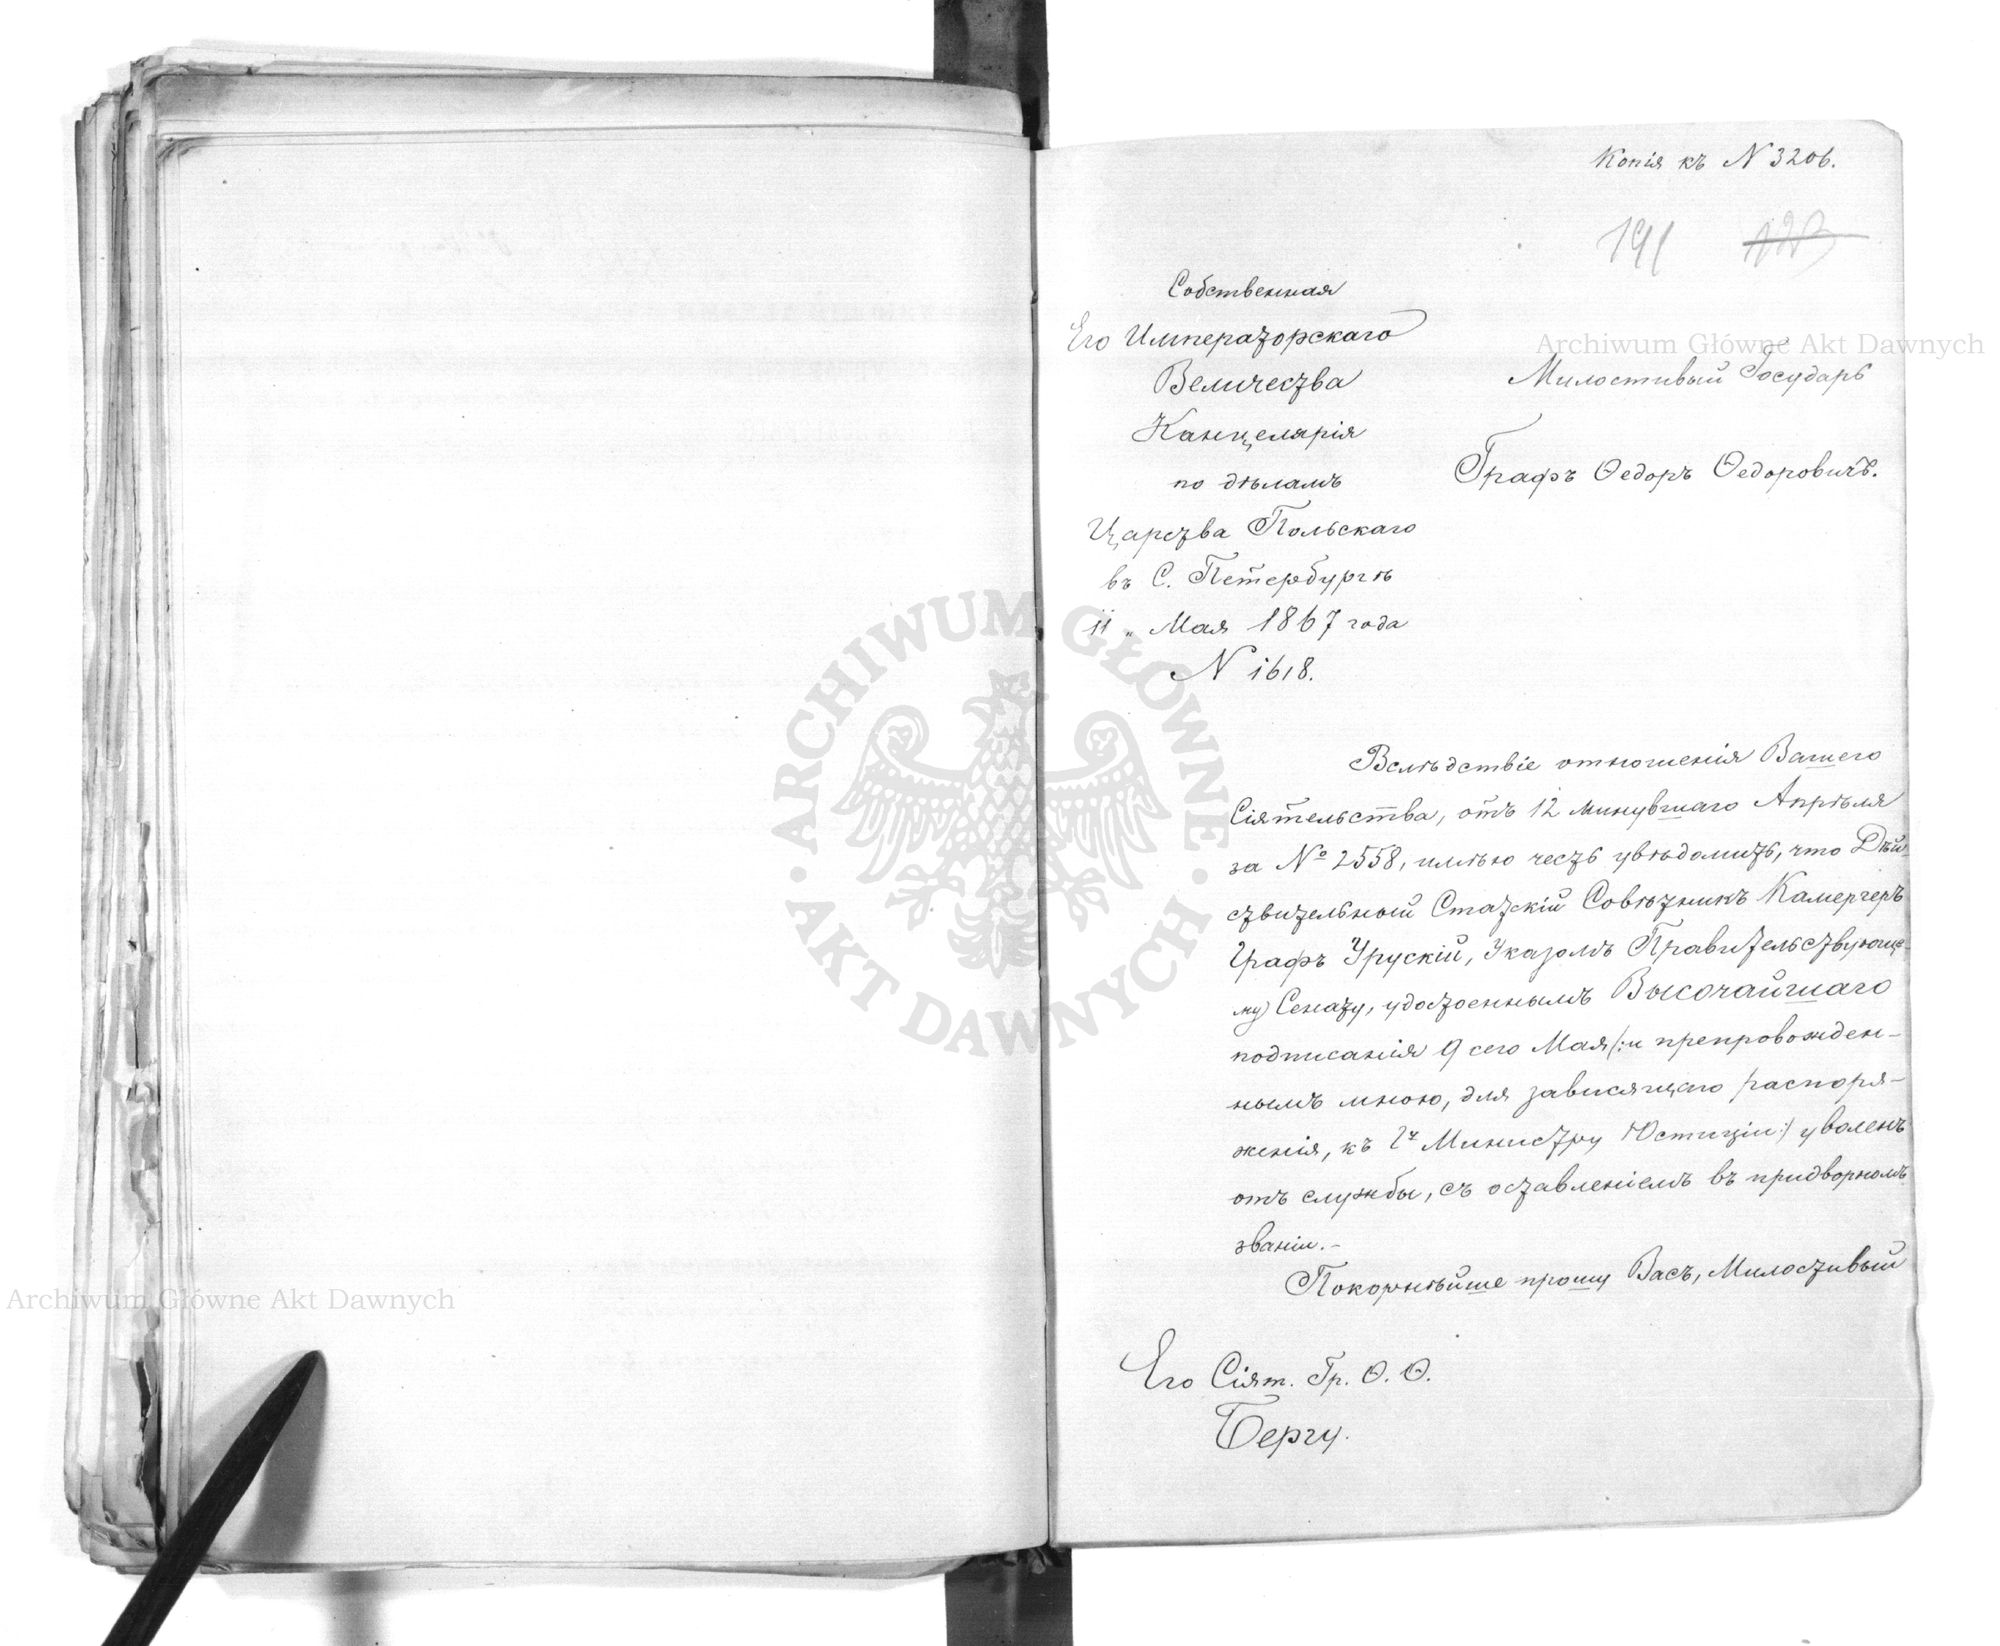 Копія къ N 3206.
191 123
Собственная
Его Императорскаго
Величества
Канцелярія
по дѣламъ
Царства Польскаго
въ С. Петербургѣ
11 „ Мая 1867 года
N 1618.
Милостивый Государь
Графъ Ѳедоръ Ѳедоровичъ.
Вслѣдствіе отношенія Вашего
Сіятельства, отъ 12 минувшаго Апрѣля
за № 2558, имѣю честь увѣдомить, что Дѣй-
ствительный Статскій Совѣтникъ Камергеръ
Графъ Урускій, Указомъ Правительствующе-
му Сенату, удостоеннымъ Высочайшаго
подписанія 9 сего Мая /:и препровожден-
нымъ мною, для зависящаго распоря-
женія, къ Гну Министру Юстиціи:/ уволенъ
отъ службы, съ оставленіемъ въ придворномъ
званіи.-
Покорнѣйше прошу Васъ, Милостивый
Его Сіят. Гр. Ѳ. Ѳ.
Бергу.
Archiwum Główne Akt Dawnych
Archiwum Główne Akt Dawnych
ARCHIWUM GŁÓWNE · AKT DAWNYCH ·